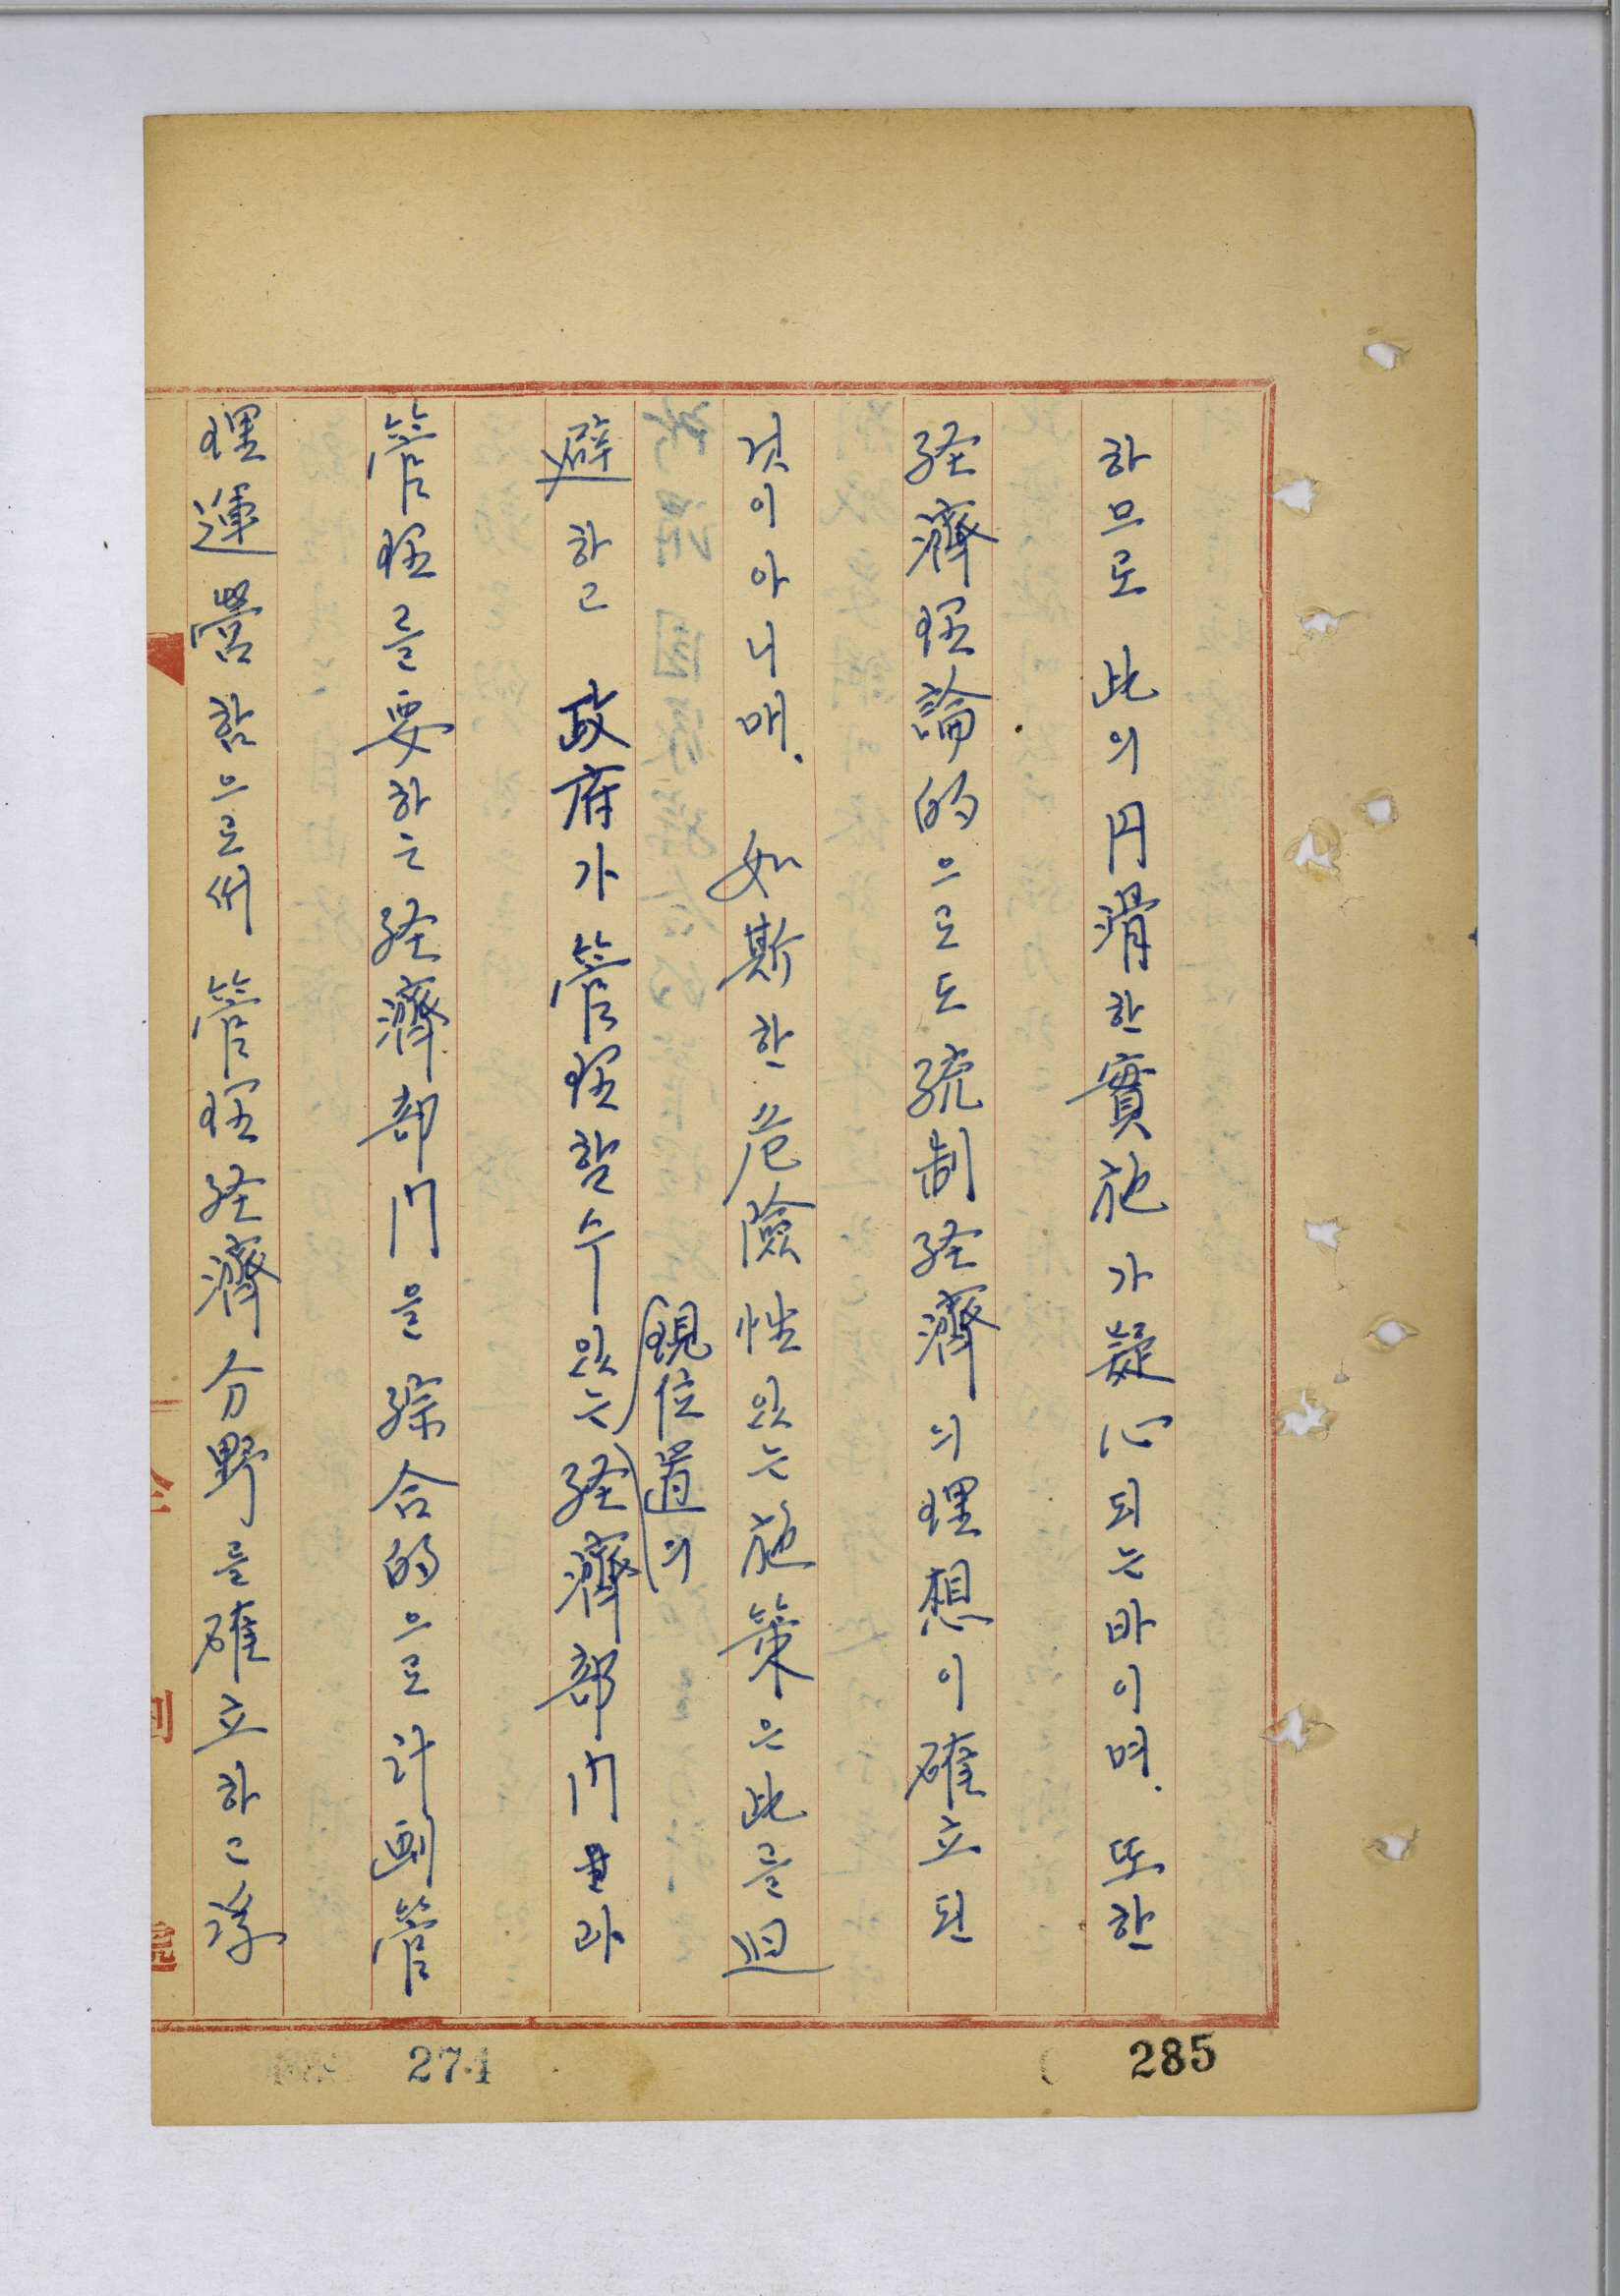 하므로 此의 円滑한 實施가 疑心되는바이며. 또한
經濟理論的으로도 統制經濟의 理想이 確立된
것이아니며. 如斯한 危險性있는 施策은 此를 回
避하고 政府가 管理할수있는 經濟部門 과
現位置의
管理를 要하는 經濟部門을 綜合的으로 管
理運營함으로 管理經濟分野를 確立하고
285
274